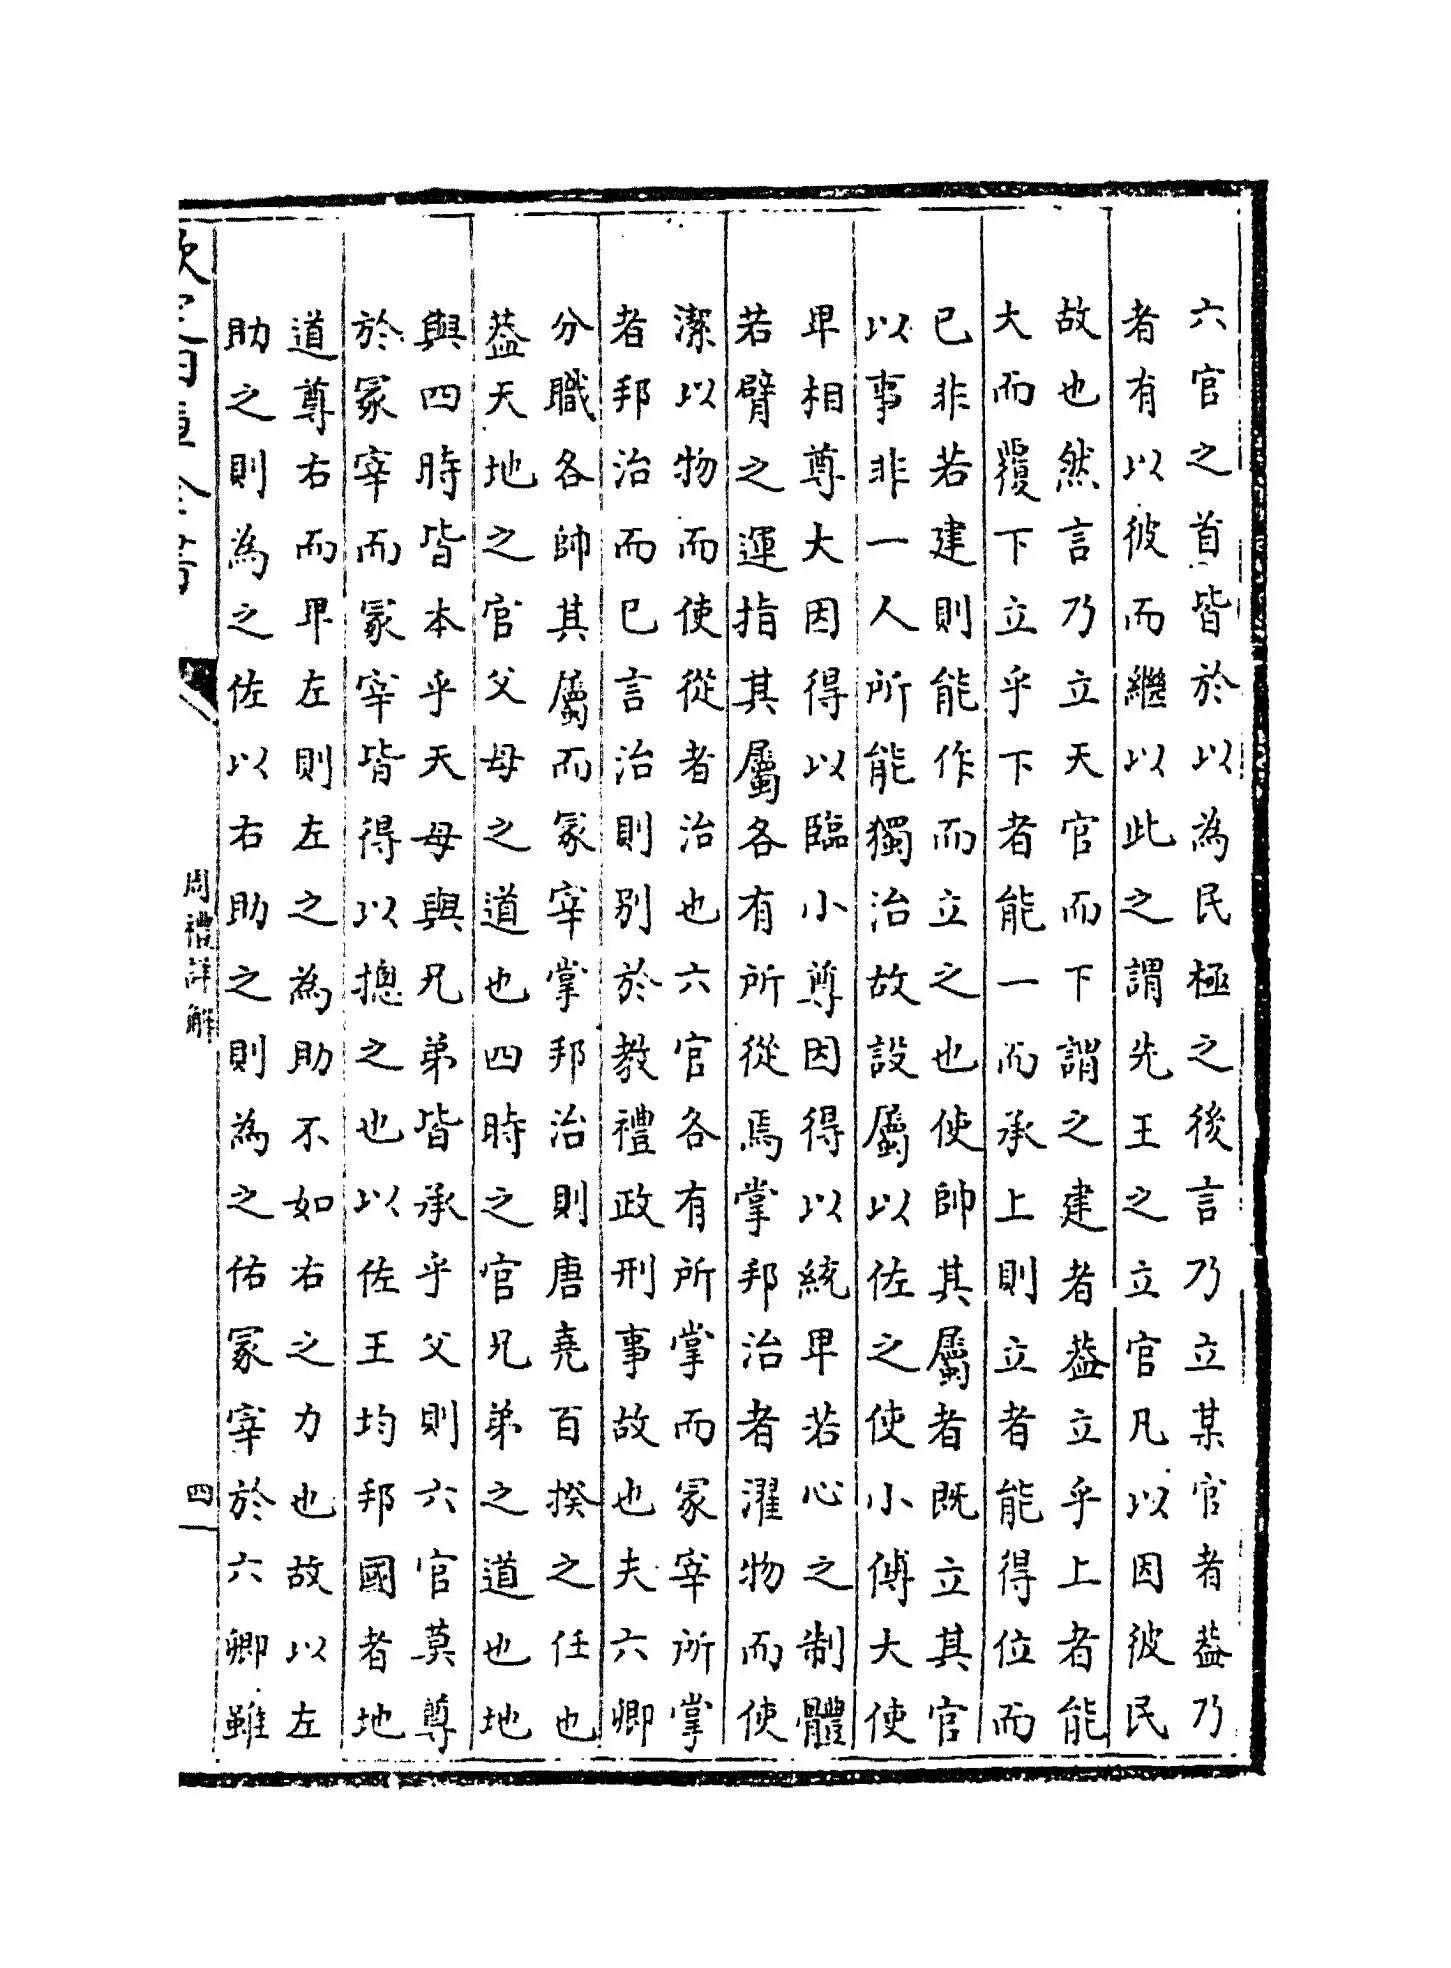 六官之首皆於以為民極之後言乃立某官者葢乃
者有以彼而繼以此之謂先王之立官凡以因彼民
故也然言乃立天官而下謂之建者葢立乎上者能
大而覆下立乎下者能一而承上則立者能得位而
已非若建則能作而立之也使帥其屬者既立其官
以事非一人所能獨治故設屬以佐之使小傅大使
卑相尊大因得以臨小尊因得以統卑若心之制體
若臂之運指其屬各有所從焉掌邦治者濯物而使
潔以物而使從者治也六官各有所掌而冢宰所掌
者邦治而已言治則别於教禮政刑事故也夫六卿
分職各帥其屬而冢宰掌邦治則唐堯百揆之任也
葢天地之官父母之道也四時之官兄弟之道也地
與四時皆本乎天母與兄弟皆承乎父則六官莫尊
於冢宰而冢宰皆得以摠之也以佐王均邦國者地
道尊右而卑左則左之為助不如右之力也故以左
助之則為之佐以右助之則為之佑冢宰於六卿雖
欽定四庫全書
周禮詳解
四